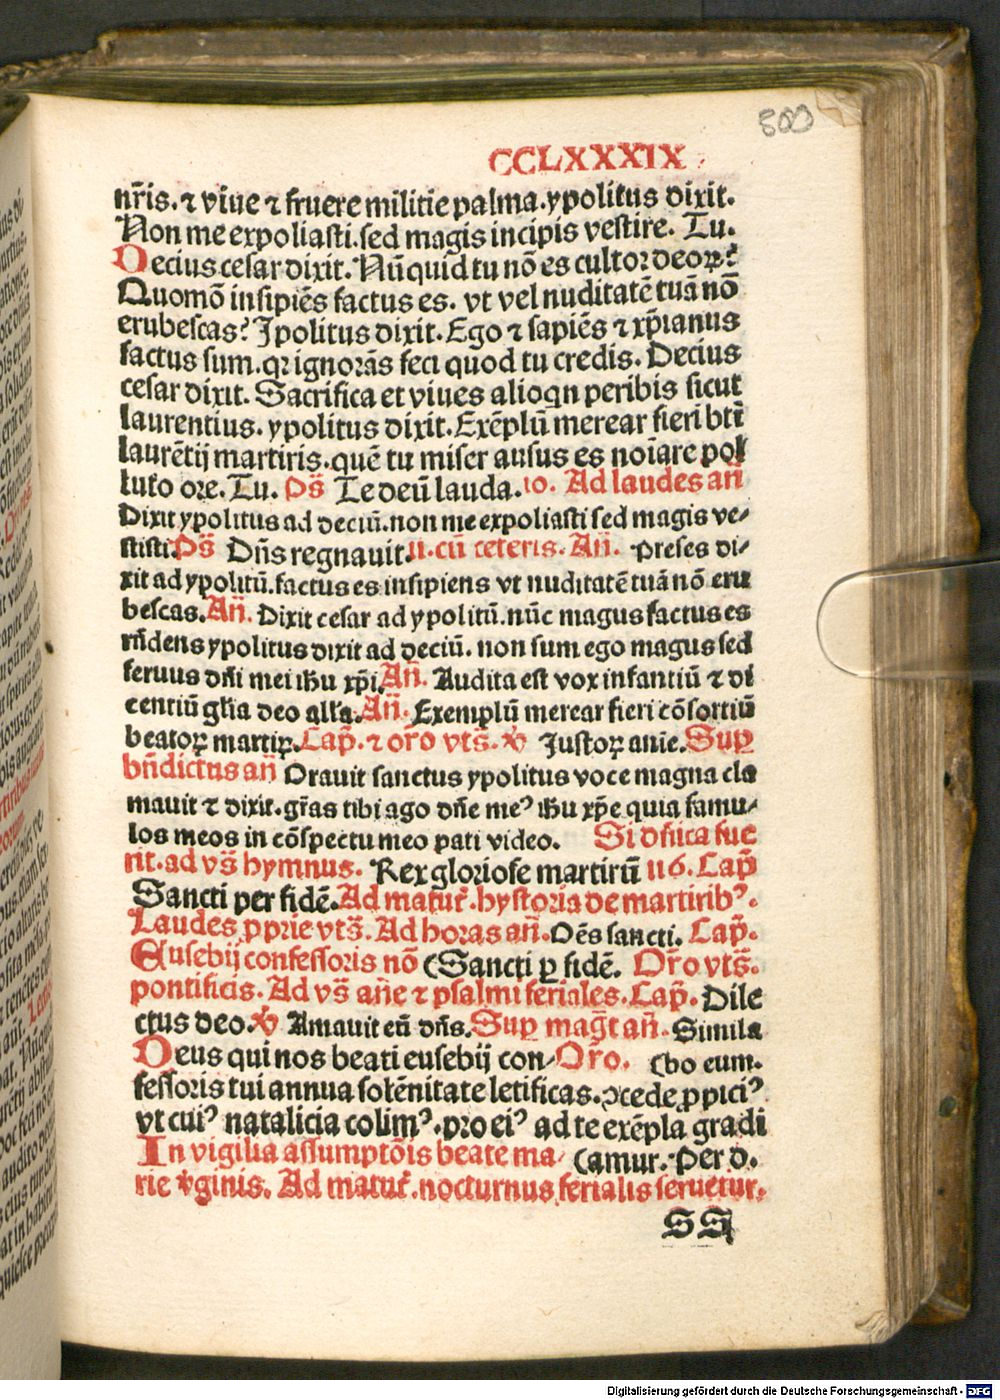 800
CCLXXXIX
nr̄is. ⁊ viue ⁊ fruere militie palma. ypolitus dixit.
Non me expoliasti. sed magis incipis vestire. Tu.
Decius cesar dixit. Nūquid tu nō es cultor deoꝝ?
Quomō insipiēs factus es. vt vel nuditatē tuā nō
erubescas? Ipolitus dixit. Ego ⁊ sapiēs ⁊ xp̄ianus
factus sum. qꝛ ignorās feci quod tu credis. Decius
cesar dixit. Sacrifica et viues alioqn peribis sicut
laurentius. ypolitus dixit. Exēplū merear fieri btī
laurētij martiris. quē tu miser ausus es noīare pol
luto ore. Tu. Ps̄ Te deū lauda. 10. Ad laudes an̄
Dixit ypolitus ad deciū. non me expoliasti sed magis ve⸗
stisti. Ps̄ Dn̄s regnauit. 11. cū ceteris. An̄. Preses di⸗
xit ad ypolitū. factus es insipiens vt nuditatē tuā nō eru
bescas. An̄. Dixit cesar ad ypolitū. nūc magus factus es
rn̄dens ypolitus dixit ad deciū. non sum ego magus sed
seruus dn̄i mei ihu xp̄i. An̄. Audita est vox infantiū ⁊ di
centiū gl̄ia deo all̄a. An̄. Exemplū merear fieri cōsortiū
beatoꝝ martiꝝ. Cap̄. ⁊ orō vts̄. ℣ Iustoꝝ anīe. Suꝑ
bn̄dictus an̄ Orauit sanctus ypolitus voce magna cla
mauit ⁊ dixit. gr̄as tibi ago dn̄e meꝰ ihu xp̄e quia famu⸗
los meos in cōspectu meo pati video. Si dn̄ica fue
rit. ad vs̄ hymnus. Rex gloriose martirū 116. Cap̄
Sancti per fidē. Ad matut̄. hystoria de martiribꝰ.
Laudes ꝓprie vts̄. Ad horas an̄. Oēs sancti. Cap̄.
Eusebij confessoris nō (Sancti ꝑ fidē. Or̄o vts̄.
pontificis. Ad vs̄ an̄e ⁊ psalmi feriales. Cap̄. Dile
ctus deo. ℣ Amauit eū dn̄s. Suꝑ maḡt an̄. Simila
Deus qui nos beati eusebij con⸗ Or̄o. (bo eum.
fessoris tui annua solēnitate letificas. ꝯcede ꝓpiciꝰ
vt cuiꝰ natalicia colimꝰ. pro eiꝰ ad te exēpla gradi
In vigilia assumptōis beate ma⸗ (amur. Per d.
rie v̄ginis. Ad matut̄. nocturnus ferialis seruetur.
SS
Digitalisierung gefördert durch die Deutsche Forschungsgemeinschaft - DFG